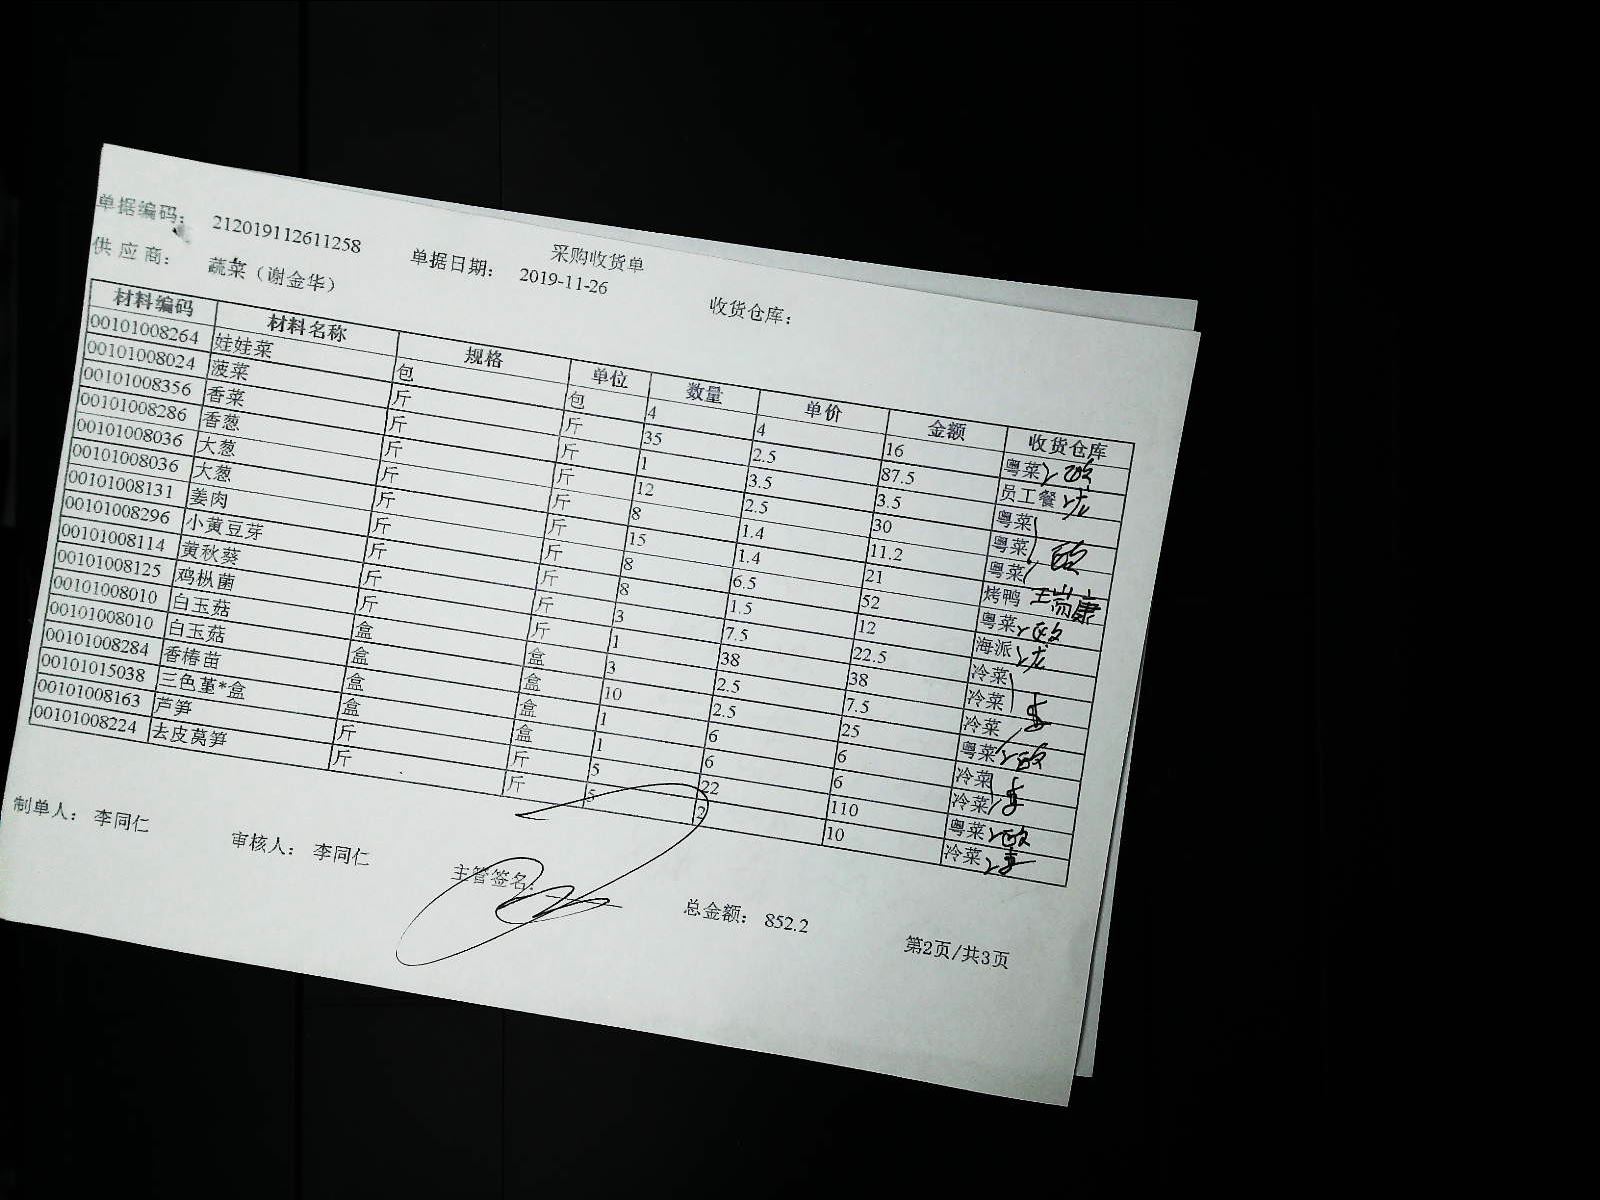 采购收货单
单据编码: 212019112611258 单据日期: 2019-11-26 收货仓库:
供应商: 蔬菜（谢金华）
材料编码 材料名称 规格 单位 数量 单价 金额 收货仓库
00101008264 娃娃菜 包 包 4 4 16 粤菜
00101008024 菠菜 斤 斤 35 2.5 87.5 员工餐
00101008356 香菜 斤 斤 1 3.5 3.5 粤菜
00101008286 香葱 斤 斤 12 2.5 30 粤菜
00101008036 大葱 斤 斤 8 1.4 11.2 粤菜
00101008036 大葱 斤 斤 15 1.4 21 烤鸭 王瑞康
00101008131 姜肉 斤 斤 8 6.5 52 粤菜
00101008296 小黄豆芽 斤 斤 8 1.5 12 海派
00101008114 黄秋葵 斤 斤 3 7.5 22.5 冷菜
00101008125 鸡枞菌 斤 斤 1 38 38 冷菜
00101008010 白玉菇 盒 盒 3 2.5 7.5 冷菜
00101008010 白玉菇 盒 盒 10 2.5 25 粤菜
00101008284 香椿苗 盒 盒 1 6 6 冷菜
00101015038 三色堇*盒 盒 盒 1 6 6 冷菜
00101008163 芦笋 斤 斤 5 22 110 粤菜
00101008224 去皮莴笋 斤 斤 5 2 10 冷菜
制单人: 李同仁 审核人: 李同仁 主管签名: 总金额: 852.2 第2页/共3页